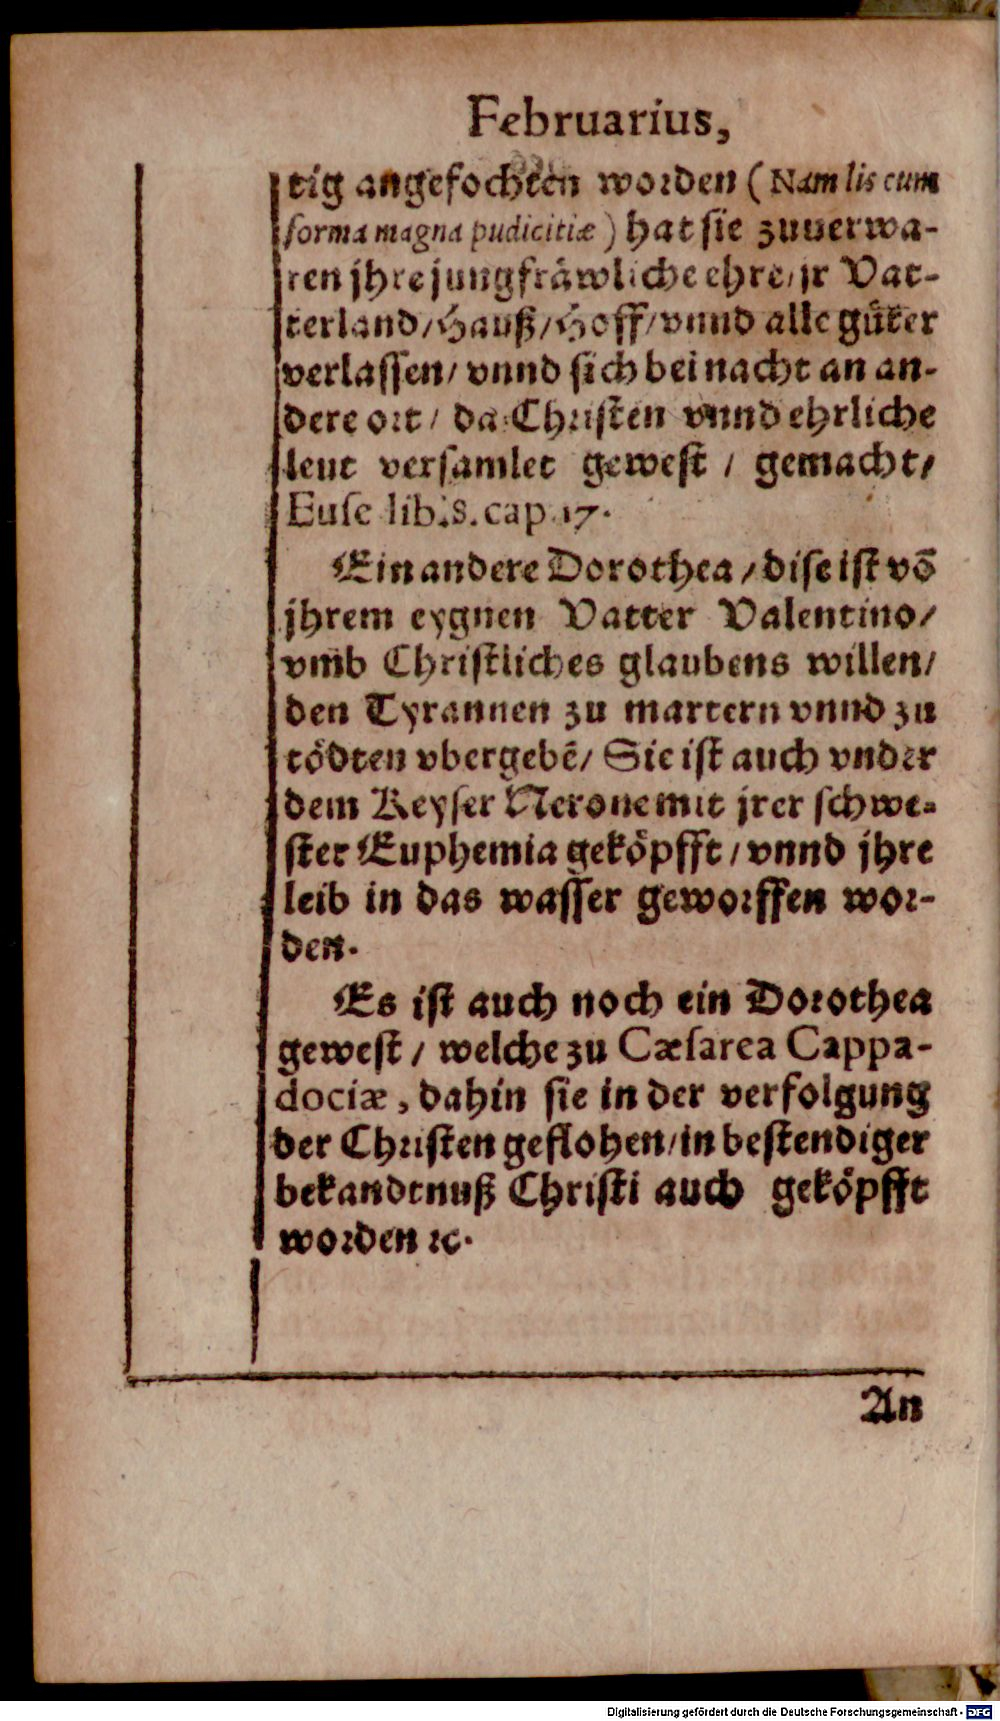 Februarius,
tig angefochten worden (Nam lis cum
forma magna pudicitiæ) hat sie zuuerwa-
ren jhre jungfråwliche ehre/ jr Vat-
terland/ Hauß/ Hoff/ vnnd alle gůter
verlassen/ vnnd sich bei nacht an an-
dere ort/ da Christen vnnd ehrliche
leut versamlet gewest / gemacht/
Euse lib. 8. cap. 17.
Ein andere Dorothea/ dise ist võ
jhrem eygnen Vatter Valentino/
vmb Christliches glaubens willen/
den Tyrannen zu martern vnnd zu
tödten vbergebẽ/ Sie ist auch vnder
dem Keyser Nerone mit jrer schwe-
ster Euphemia geköpfft/ vnnd jhre
leib in das wasser geworffen wor-
den.
Es ist auch noch ein Dorothea
gewest/ welche zu Cæsarea Cappa-
dociæ, dahin sie in der verfolgung
der Christen geflohen/ in bestendiger
bekandtnuß Christi auch geköpfft
worden ꝛc.
An
Digitalisierung gefördert durch die Deutsche Forschungsgemeinschaft - DFG